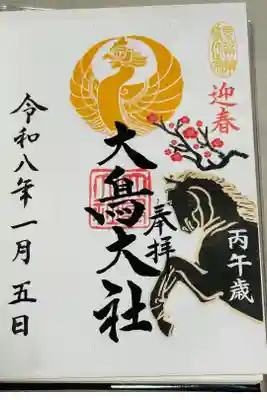 迎春
丙午歳
奉拝
大鳥大社
令和八年一月五日